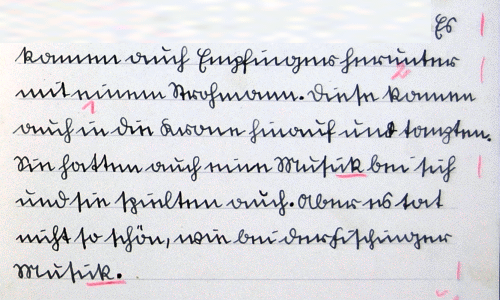 Es
kamen auch Empfingers herunter
mit einem Strohmann. Diese kamen
auch in die Krone hinauf und tanzten.
Sie hatten auch eine Musick bei sich
und sie spielten auch. Aber es tat
nicht so schön, wie bei der Fischinger
Musick.